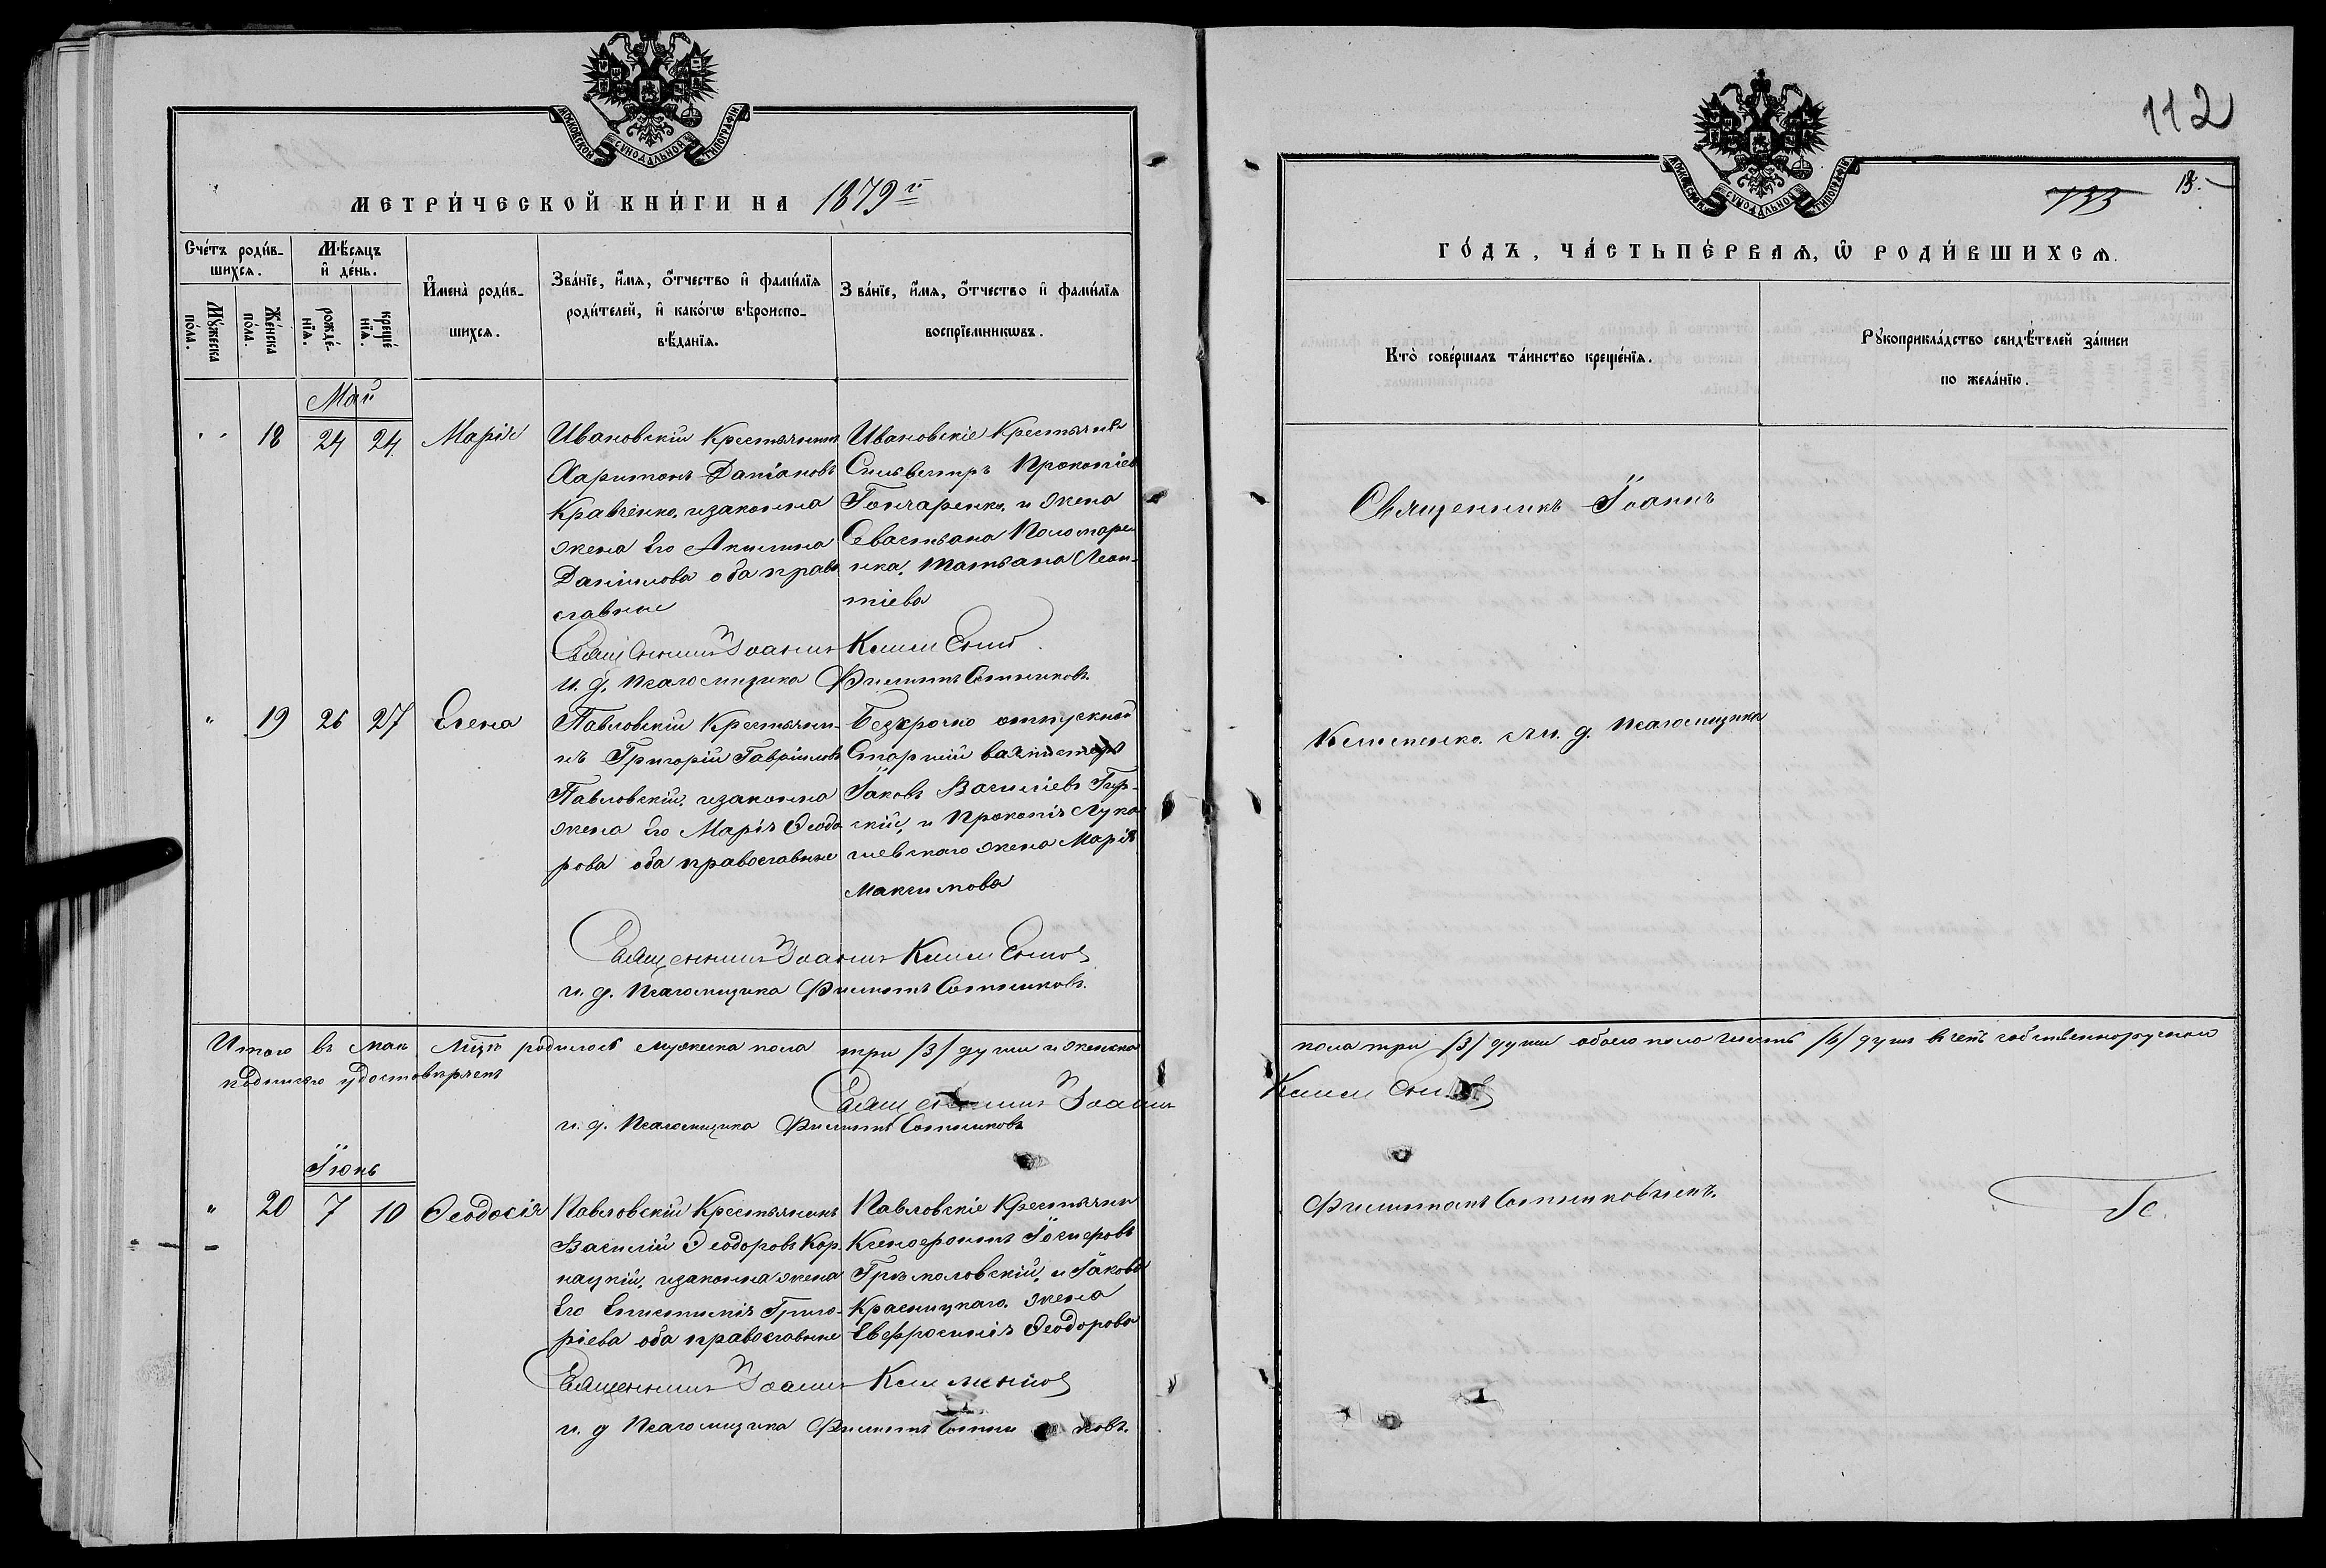 МОСКОВСКОЙ СѴНОДАЛЬНОЙ ТИПОГРАФІИ.
МЕТРИ́ЧЕСКОЙ КНИ́ГИ НА 1879й
Сче́тъ роди́в-
шихся.
Мѣ́сяцъ
и҆ де́нь.
Мꙋ́жеска
по́ла.
Же́нска
по́ла.
рожде́-
нїя.
креще́
нїя.
И҆мена̀ роди́в-
шихся.
Зва́нїе, и҆́мя, ѻ҆́тчество и҆ фами́лїя
роди́телей, и҆ како́гѡ вѣроиспо-
вѣ́данїя.
Зва́нїе, и҆́мя, ѻ҆́тчество и҆ фами́лїя
воспрїемникѡвъ.
Май
" " 18 24 24 Марія
Ивановскій Крестьянинъ
Харитонъ Даміановъ
Кравченко, изаконна
жена Его Акилина
Даніилова оба право
славные
Ивановскіе Крестьяне
Сильвестръ Прокопіевъ
Гончаренко, и жена
Севастьяна Пономарен
ка, Татьяна Леон-
тіева
Священникъ Іоаннъ Клименко
и. д. Псаломщика Филиппъ Сотниковъ.
" 19 26 27 Елена
Павловскій Крестьяни-
нъ Григорій Гавріиловъ
Павловскій, изаконна
жена Его Марія Ѳеодо
рова оба православные
Безсрочно отпускной
Старшій вахмистръ
Іаковъ Василіевъ Гур-
скій, и Прокопія Лука
шевскаго жена Марія
Максимова
Священникъ Іоаннъ Клименко
и. д. Псаломщика Филиппъ Сотниковъ.
Итого въ маѣ мцѣ родилось мужеска пола три /3/ души и женска
подписью удостовѣряемъ
Священникъ Іоаннъ
и. д. Псаломщика Филиппъ Сотниковъ
Іюнь
" 20 7 10 Ѳеодосія
Павловскій Крестьянинъ
Василій Ѳеодоровъ Кор
нацкій, изаконна жена
Его Епистимія Григо-
ріева оба православные
Павловскіе Крестьяни
Ксенофонтъ Іосифовъ
Іакова
Красницкаго жена
Евфросинія Ѳеодорова
Священникъ Іоаннъ Клименко
и. д Псаломщика Филиппъ Сотниковъ.
112
133
13.
МОСКОВСКОЙ СѴНОДАЛЬНОЙ ТИПОГРАФІИ.
ГО́ДЪ, ЧА́СТЬ ПЕ́РВАѦ, Ѡ҆ РОДИ́ВШИХСѦ.
Кто̀ соверша́лъ та́инство креще́нїя.
Рꙋкоприкла́дство свидѣ́телей за́писи
по жела́нїю.
Священникъ Іоаннъ
Клименко. съ и. д. Псаломщика
пола три /3/ души обоего пола шесть /6/ душъ въ чемъ собственноручною
Клименко
Филиппомъ Сотниковымъ.